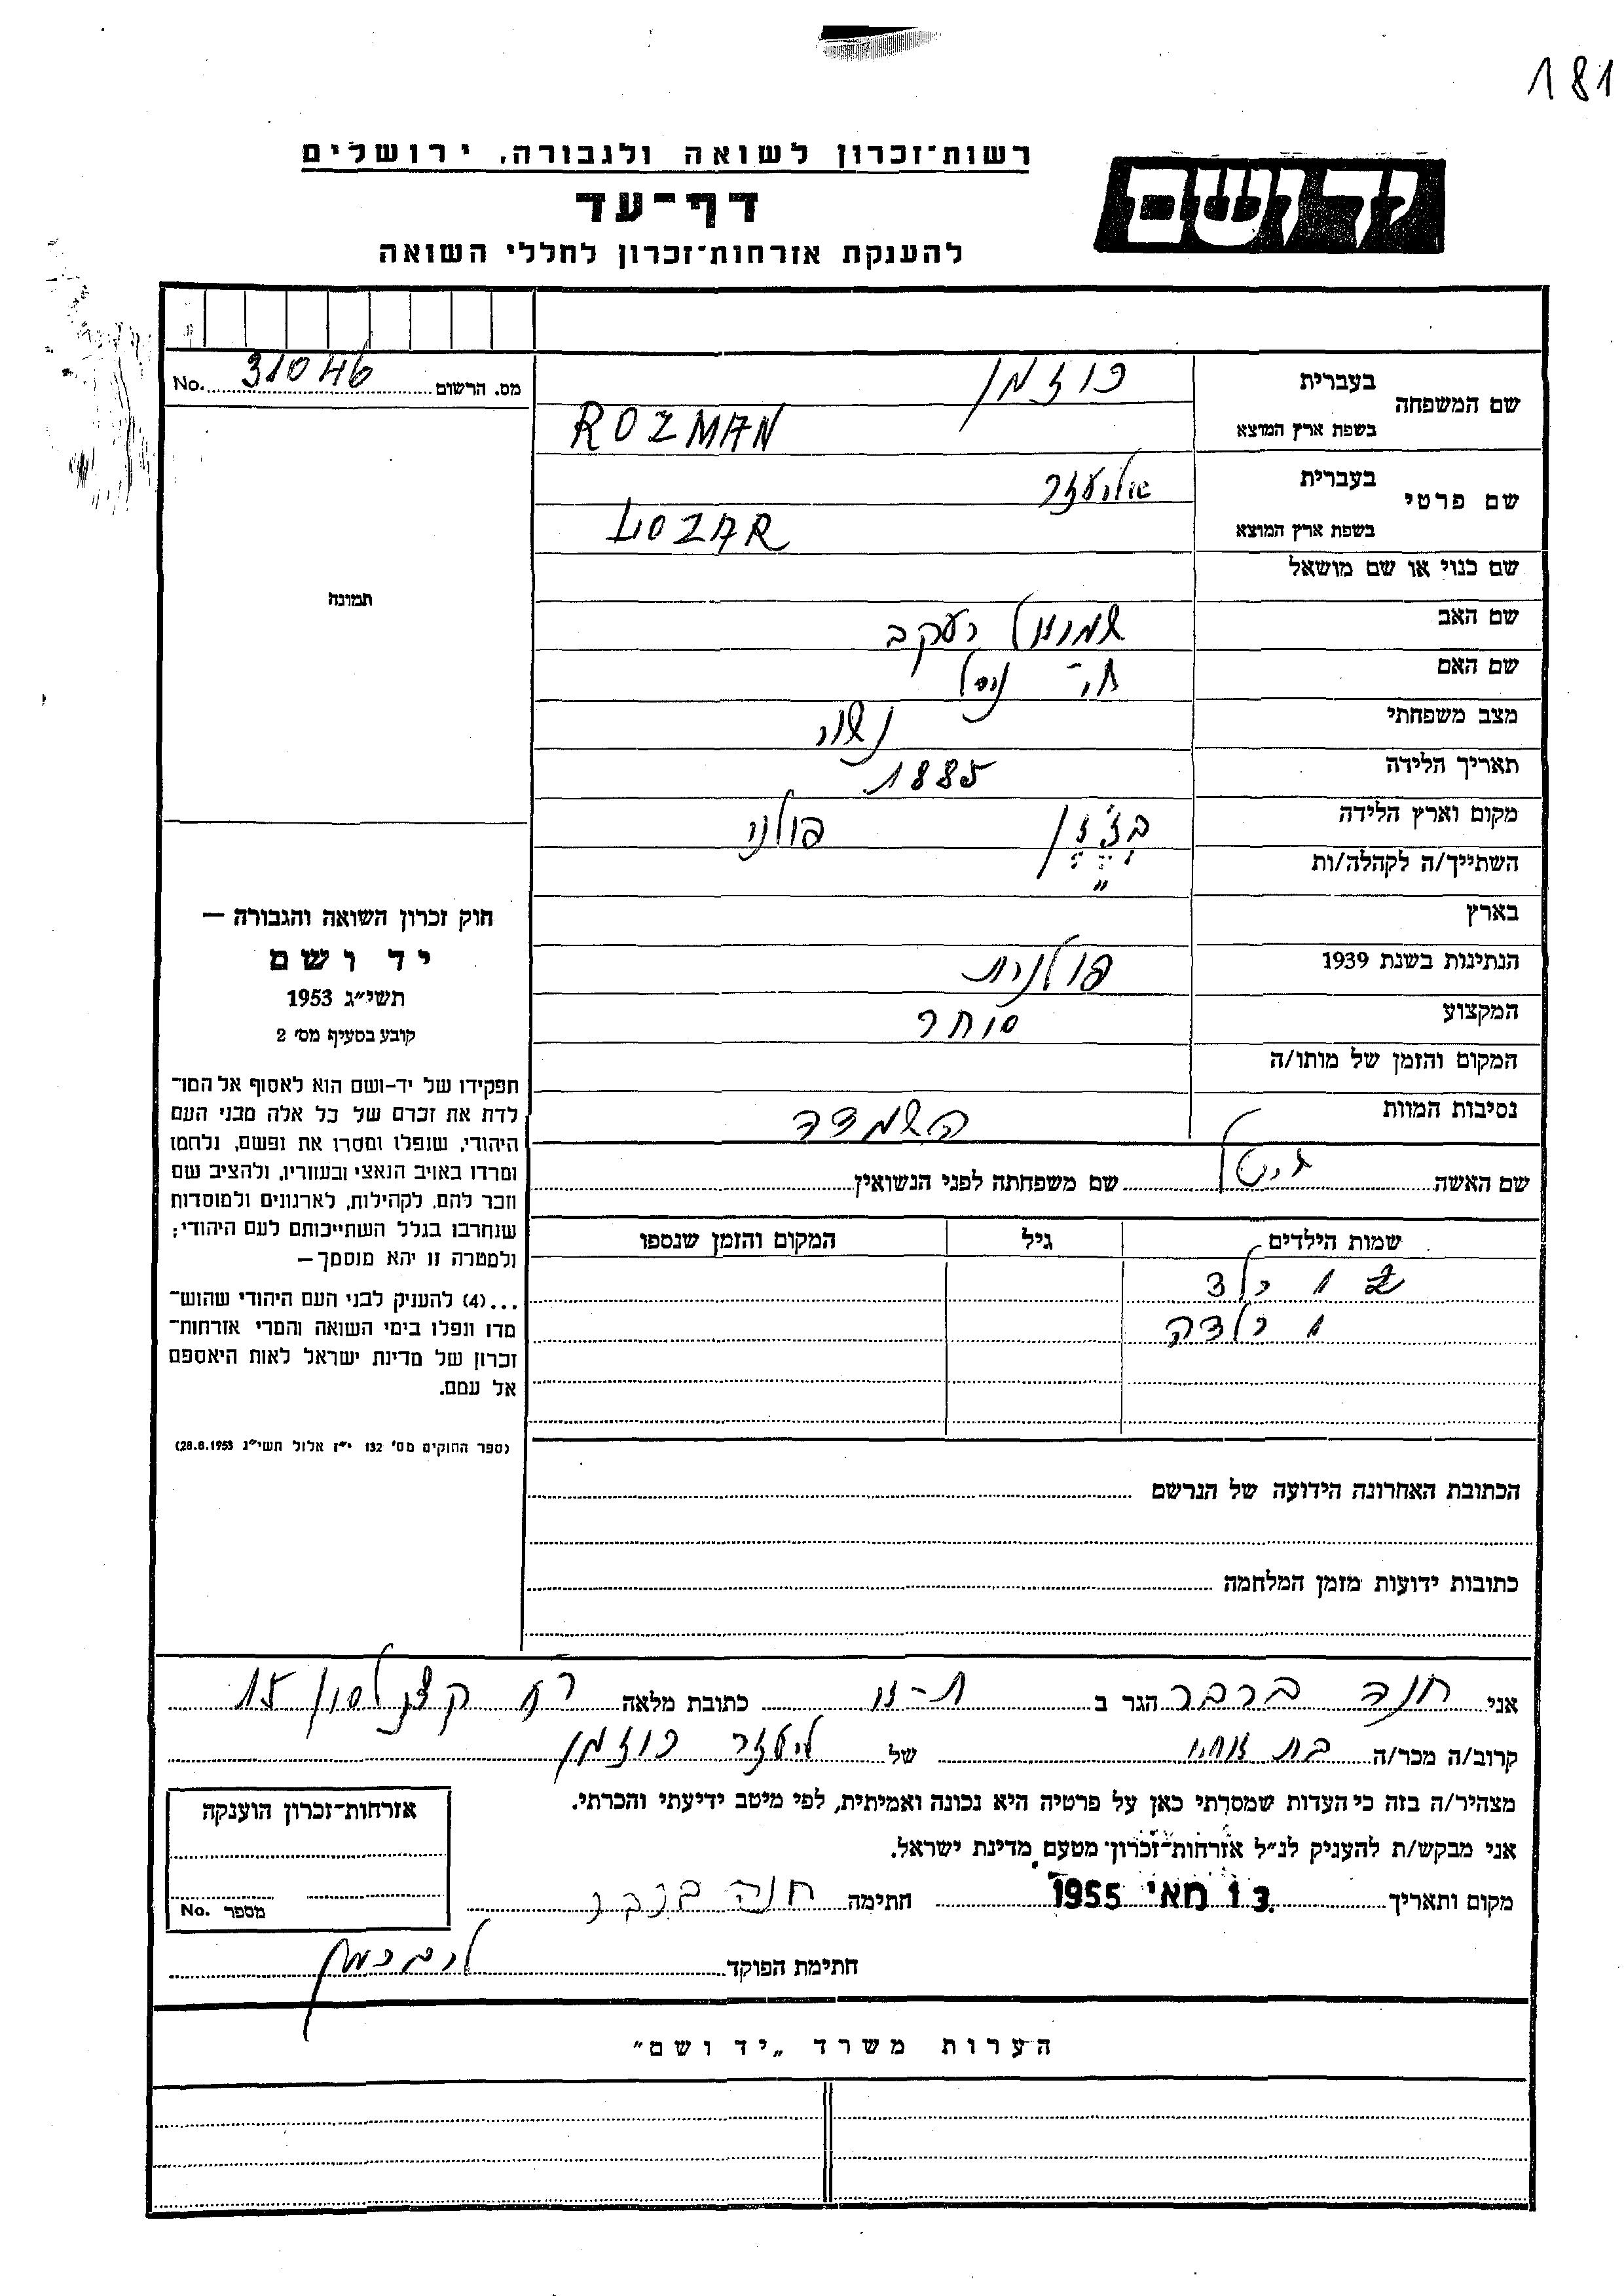 181
רשות־זכרון לשואה ולגבורה, ירושלים
יד ושם
דף־עד
להענקת אזרחות־זכרון לחללי השואה
מס. הרשום 31046 No.
שם המשפחה
בעברית רוזמן
בשפת ארץ המוצא ROZMAN
שם פרטי
בעברית אליעזר
בשפת ארץ המוצא LOZAR
תמונה
שם כנוי או שם מושאל
שם האב שמואל יעקב
שם האם חי'
מצב משפחתי נשוי
תאריך הלידה 1885
מקום וארץ הלידה פולני
השתייך/ה לקהלה/ות "
בארץ
הנתינות בשנת 1939 פולנית
המקצוע סוחר
המקום והזמן של מותו/ה
נסיבות המוות השמדה
שם האשה גיטל שם משפחתה לפני הנשואין
שמות הילדים גיל המקום והזמן שנספו
1 ילד
1 ילדה
הכתובת האחרונה הידועה של הנרשם
כתובות ידועות מזמן המלחמה
חוק זכרון השואה והגבורה —
יד ושם
תשי״ג 1953
קובע בסעיף מס׳ 2
תפקידו של יד-ושם הוא לאסוף אל המו־
לדת את זכרם של כל אלה מבני העם
היהודי, שנפלו ומסרו את נפשם, נלחמו
ומרדו באויב הנאצי ובעוזריו, ולהציב שם
וזכר להם, לקהילות, לארגונים ולמוסדות
שנחרבו בגלל השתייכותם לעם היהודי;
ולמטרה זו יהא מוסמך —
...(4) להענק לבני העם היהודי שהוש־
מדו ונפלו בימי השואה והמרי אזרחות־
זכרון של מדינת ישראל לאות היאספם
אל עמם.
(ספר החוקים מס׳ 132 י״ז אלול תשי״ג 28.8.1953)
אני חנה ברבר הגר ב ת-א כתובת מלאה רח קצנלסון 15
קרוב/ה מכר/ה בת אחיו של ליעזר רוזמן
מצהיר/ה בזה כי העדות שמסרתי כאן על פרטיה היא נכונה ואמיתית, לפי מיטב ידיעתי והכרתי.
אני מבקש/ת להעניק לנ״ל אזרחות־זכרון מטעם מדינת ישראל.
מקום ותאריך 13 מאי 1955 חתימה חנה ברבר
חתימת הפוקד ליברמן
אזרחות־זכרון הוענקה
מספר No.
הערות משרד „יד ושם״